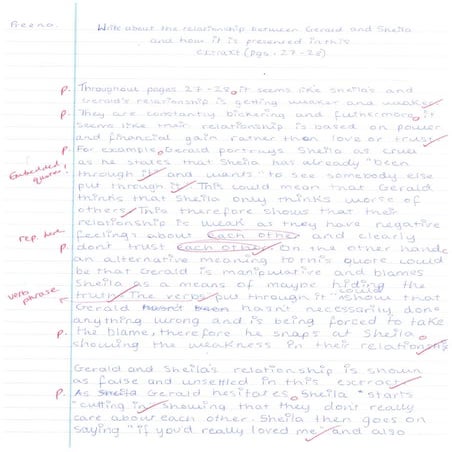 Preena.
Write about the relationship between Gerald and Sheila
and how it is presented in this
extract (pgs. 27-28)
P. Throughout pages 27-28, it seems like Sheila's and
Gerald's relationship is getting weaker and weaker
P. They are constantly bickering and futhermore, it
seems like their relationship is based on power
and financial gain rather than love or trust.
P. For example, Gerald portrays Sheila as cruel
Embedded quotes! as he states that Sheila has already "been
through it" and wants "to see somebody else
put through it." This could mean that Gerald
thinks that Sheila only thinks worse of
others. This therefore shows that their
relationship is weak as they have negative
rep. here feelings about each other and clearly
P. don't trust each other. On the other hand,
an alternative meaning to this quote could
be that Gerald is manipulative and blames
Sheila as a means of maybe hiding the
verb phrase truth. The verbs "put through it" could show that
Gerald hasn't necessarily done
anything wrong and is being forced to take
P. the blame, therefore he snaps at Sheila,
showing the weakness in their relationship
Gerald and Sheila's relationship is shown
as false and unsettled in this extract.
P. As Gerald hesitates, Sheila "starts
"cutting in" showing that they don't really
care about each other. Sheila then goes on
saying "if you'd really loved me" and also